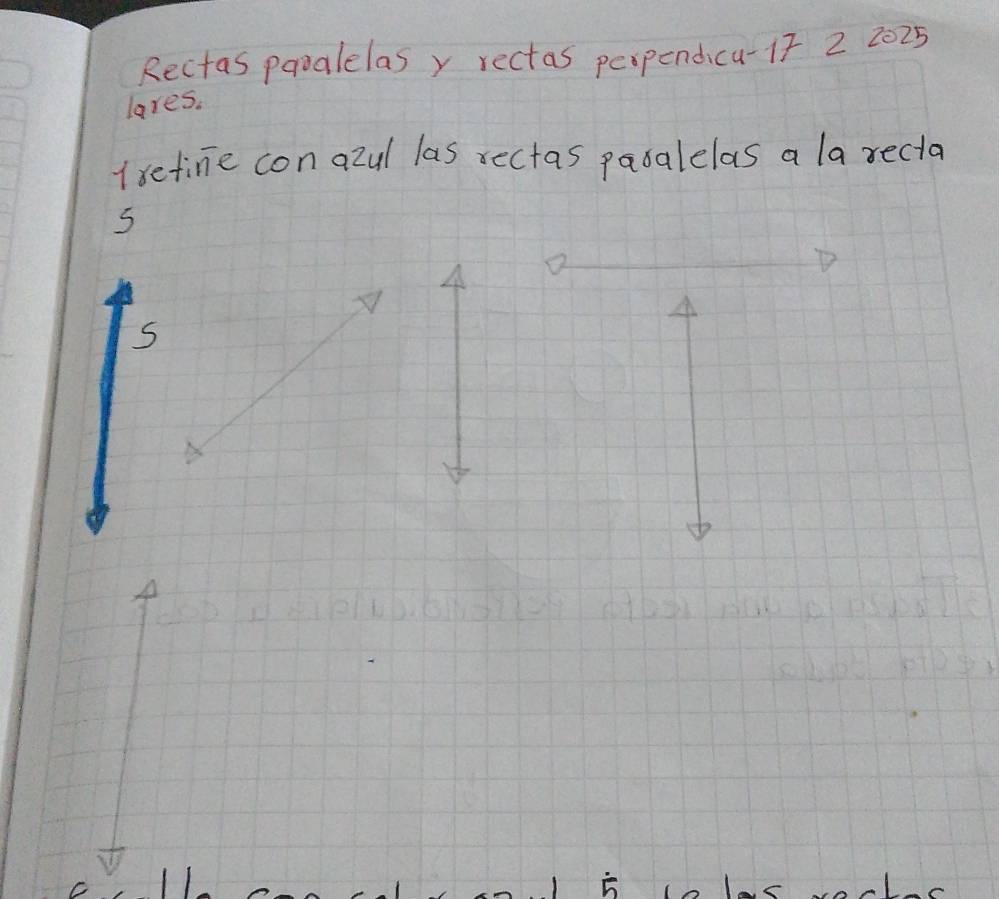 Rectas paralelas y rectas perpendicu- 17 2 2025
lares.
1 retiñe con azul las rectas paralelas a la recta
S
S
con
las rectas